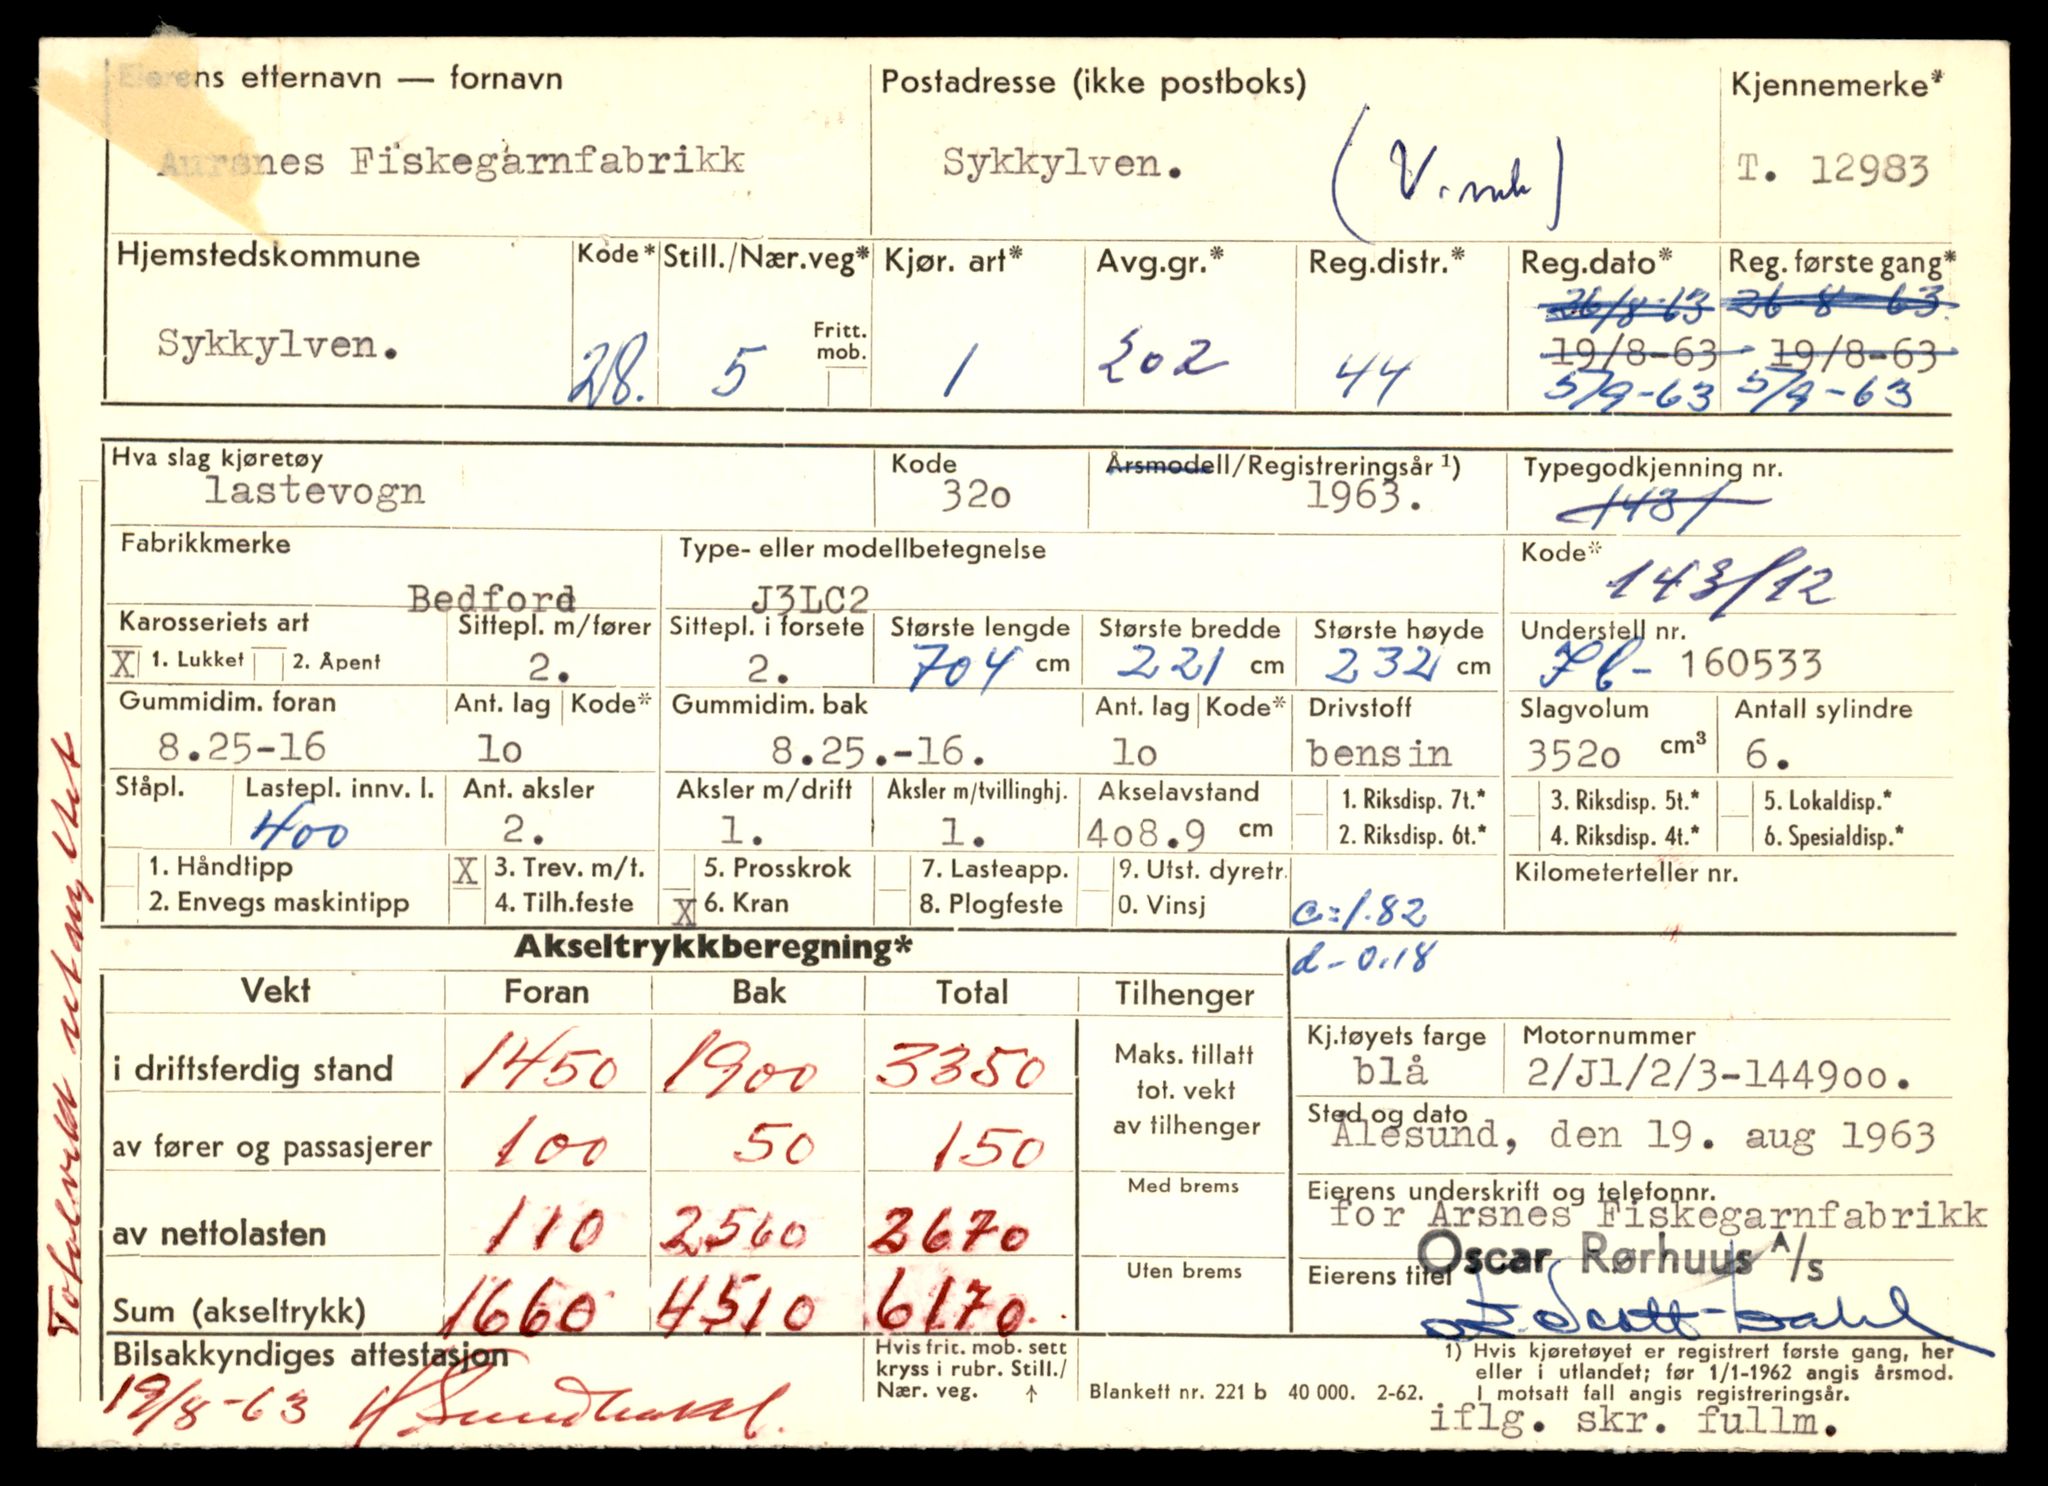 Eierens etternavn — fornavn
Postadresse (ikke postboks)
Kjennemerke*
Aursnes Fiskegarnfabrikk
Sykkylven.
T. 12983
Hjemstedskommune
Kode*
Still./Nær.veg*
Kjør. art*
Avg.gr.*
Reg.distr.*
Reg.dato*
Reg. første gang*
26/8-63 26-8-63
Sykkylven.
Fritt. mob.
19/8-63 19/8-63
28. 5 1 202 44 5/9-63 5/9-63
Hva slag kjøretøy
Kode
Årsmodell/Registreringsår ¹)
Typegodkjenning nr.
lastevogn
320
1963.
1431
Fabrikkmerke
Type- eller modellbetegnelse
Kode*
Bedford
J3LC2
143/12
Karosseriets art
Sittepl. m/fører
Sittepl. i forsete
Største lengde
Største bredde
Største høyde
Understell nr.
X 1. Lukket 2. Åpent
2.
2.
704 cm
221 cm
232 cm
160533
Gummidim. foran
Ant. lag
Kode*
Gummidim. bak
Ant. lag
Kode*
Drivstoff
Slagvolum
Antall sylindre
8.25-16
10
8.25.-16.
10
bensin
3520 cm³
6.
Ståpl.
Lastepl. innv. l.
Ant. aksler
Aksler m/drift
Aksler m/tvillinghj.
Akselavstand
1. Riksdisp. 7t.*
3. Riksdisp. 5t.*
5. Lokaldisp.*
400
2.
1.
1.
408.9 cm
2. Riksdisp. 6t.*
4. Riksdisp. 4t.*
6. Spesialdisp.*
1. Håndtipp
X 3. Trev. m/t.
5. Prosskrok
7. Lasteapp.
9. Utst. dyretr.
Kilometerteller nr.
2. Envegs maskintipp
4. Tilh.feste
X 6. Kran
8. Plogfeste
0. Vinsj
c=1.82
Akseltrykkberegning*
d-0.18
Vekt
Foran
Bak
Total
Tilhenger
i driftsferdig stand
1450
1900
3350
Maks. tillatt
tot. vekt
av tilhenger
Kj.tøyets farge
Motornummer
blå
2/J1/2/3-144900.
av fører og passasjerer
100
50
150
Sted og dato
Ålesund, den 19. aug 1963
Med brems
av nettolasten
110
2560
2670
Eierens underskrift og telefonnr.
for Arsnes Fiskegarnfabrikk
Oscar Rørhuus A/s
Uten brems
Eierens titel
Sum (akseltrykk)
1660
4510
6170.
Bilsakkyndiges attestasjon
19/8-63
Hvis frit. mob. sett
kryss i rubr. Still./
Nær. veg. ↑
Blankett nr. 221 b 40 000. 2-62.
1) Hvis kjøretøyet er registrert første gang, her
eller i utlandet; før 1/1-1962 angis årsmod.
I motsatt fall angis registreringsår.
iflg. skr. fullm.
Totalvekt utnyttet